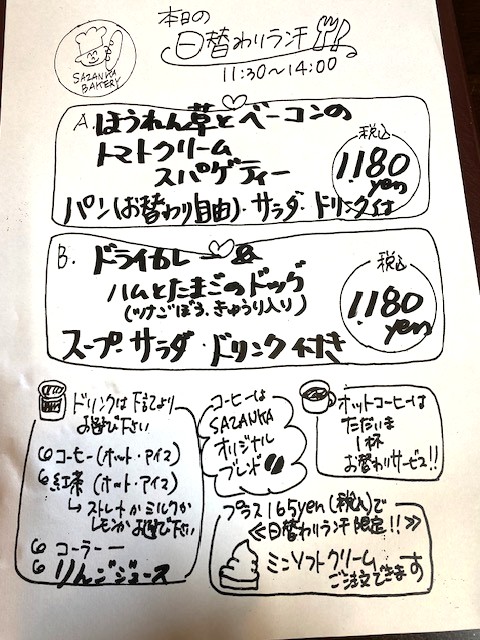 本日の
日替わりランチ
11:30~14:00
SAZANKA
BAKERY
A. ほうれん草とベーコンの
トマトクリーム
スパゲティー
税込
1.180
yen
パン(お替わり自由)・サラダ・ドリンク付
B. ドライカレー&
ハムとたまごのドッグ
(ツナごぼう、きゅうり入り)
税込
1.180
yen
スープ・サラダ・ドリンク付き
ドリンクは下記より
お選び下さい
コーヒー(ホット・アイス)
紅茶(ホット・アイス)
↳ストレートかミルクか
レモンかお選び下さい
コーラ
りんごジュース
コーヒーは
SAZANKA
オリジナル
ブレンド
ホットコーヒーは
ただいま
1杯
お替わりサービス!!
プラス165yen(税込)で
≪日替わりランチ限定!!≫
ミニソフトクリーム
ご注文できます